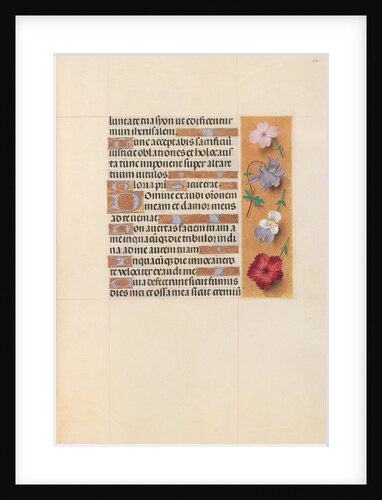 luntate tua syon ut edificentur
muri iherusalem.
Tunc acceptabis sacrificiu
iusticie oblationes et holocaus
ta tunc imponent super altare
tuum vitulos.
Gloria pri Sicut erat.
Domine exaudi orõnem
meam et clamor meus
ad te veniat
Non avertas faciem tuam a
me in quacuq; die tribulor indi
na ad me aurem tuam
In quacuq; die invocavero
te velociter exaudi me
Quia defecerunt sicut fumus
dies mei et ossa mea sicut cremiu